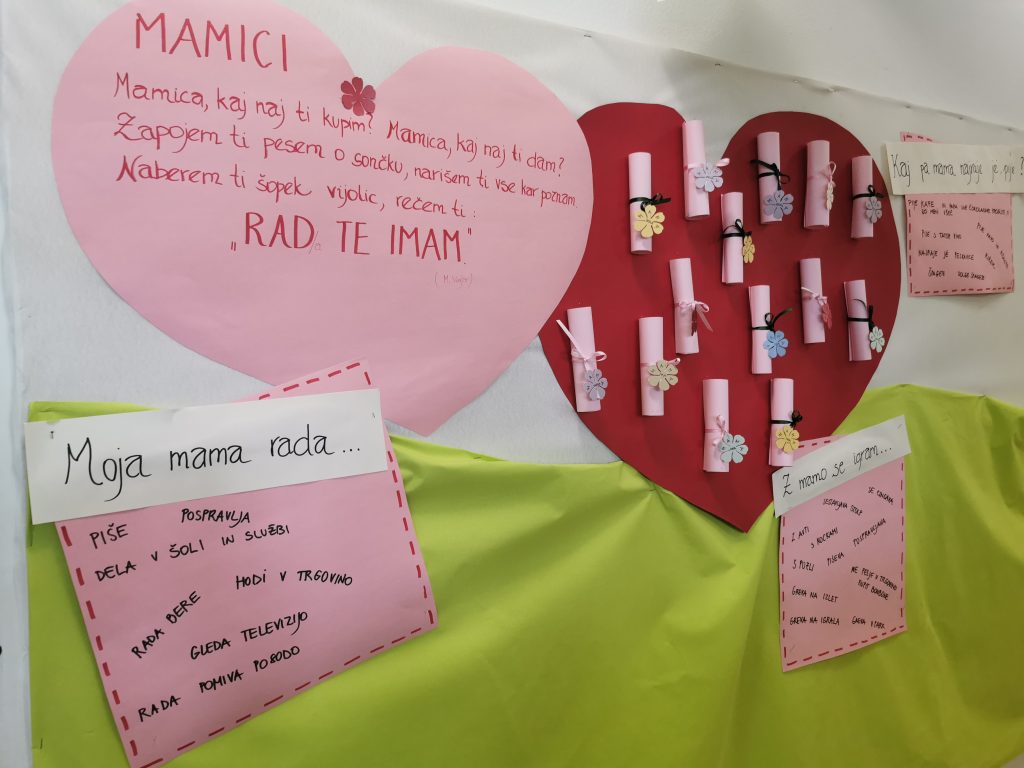 MAMICI
Mamica, kaj naj ti kupim? Mamica, kaj naj ti dam?
Zapojem ti pesem o sončku, narišem ti vse kar poznam.
Naberem ti šopek vijolic, rečem ti:
„RADja TE IMAM."
Moja mama rada...
PIŠE
POSPRAVLJA
DELA V ŠOLI IN SLUŽBI
HODI V TRGOVINO
RADA BERE
GLEDA TELEVIZIJO
RADA POMIVA POSODO
Z mamo se igram...
SE CRKLJAVA
SESTAVLJAVA
Z AVTI
S KOCKAMI
POSPRAVLJAVA
S PUZLI
PIŠEVA
ME PELJE V TRGOVINO
GREVA NA IZLET
GREVA NA IGRALA
GREVA V PARK
Kaj pa mama najraje je, pije?
PIJE KAVE IN
PIJE S TATIJEM VINO
NAJRAJE JE
ŠPAGETE
DOLGE ŠPAGETE